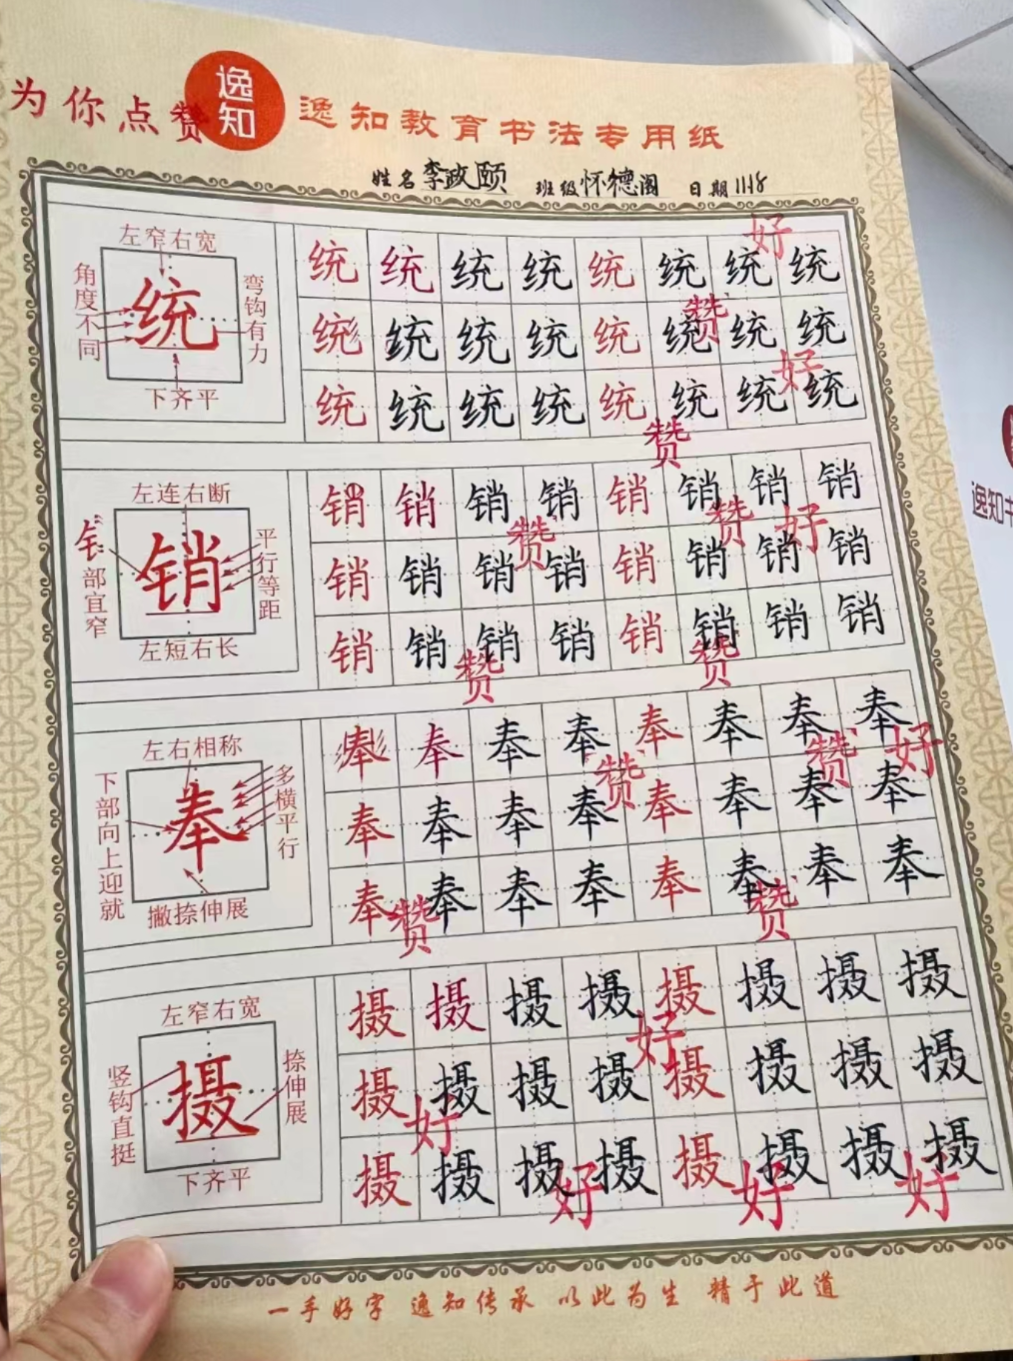 为你点赞
逸知
逸知教育书法专用纸
姓名 李政颐 班级 怀德阁 日期 11.18
左窄右宽
角度不同
统
弯钩有力
下齐平
统 统 统 统 统 统 统 统
统 统 统 统 统 统 统 统
统 统 统 统 统 统 统 统
好
赞
好
赞
左连右断
钅部宜窄
销
平行等距
左短右长
销 销 销 销 销 销 销 销
销 销 销 销 销 销 销 销
销 销 销 销 销 销 销 销
赞
赞
好
赞
赞
左右相称
下部向上迎就
奉
多横平行
撇捺伸展
奉 奉 奉 奉 奉 奉 奉 奉
奉 奉 奉 奉 奉 奉 奉 奉
奉 奉 奉 奉 奉 奉 奉 奉
赞
赞
好
赞
赞
左窄右宽
竖钩直挺
摄
捺伸展
下齐平
摄 摄 摄 摄 摄 摄 摄 摄
摄 摄 摄 摄 摄 摄 摄 摄
摄 摄 摄 摄 摄 摄 摄 摄
好
好
好
好
好
一手好字 逸知传承 以此为生 精于此道